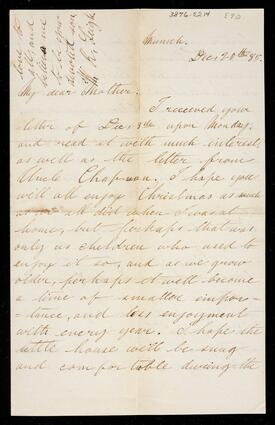 3896-2214
Munich.
Dec 20th 80.
My dear Mother.
I received your
letter of Dec 3rd upon Monday,
and read it with much interest,
as well as the letter from
Uncle Chapman. I hope you
will all enjoy Christmas as much
as all did when I was at
home, but perhaps that was
only us children who used to
enjoy it so, and as we grow
older, perhaps it will become
a time of smaller impor-
tance, and less enjoyment
with every year. I hope the
little house will be snug
and comfortable during the
love to
all, and
believe me
to be your
devoted son
W. R. Leigh